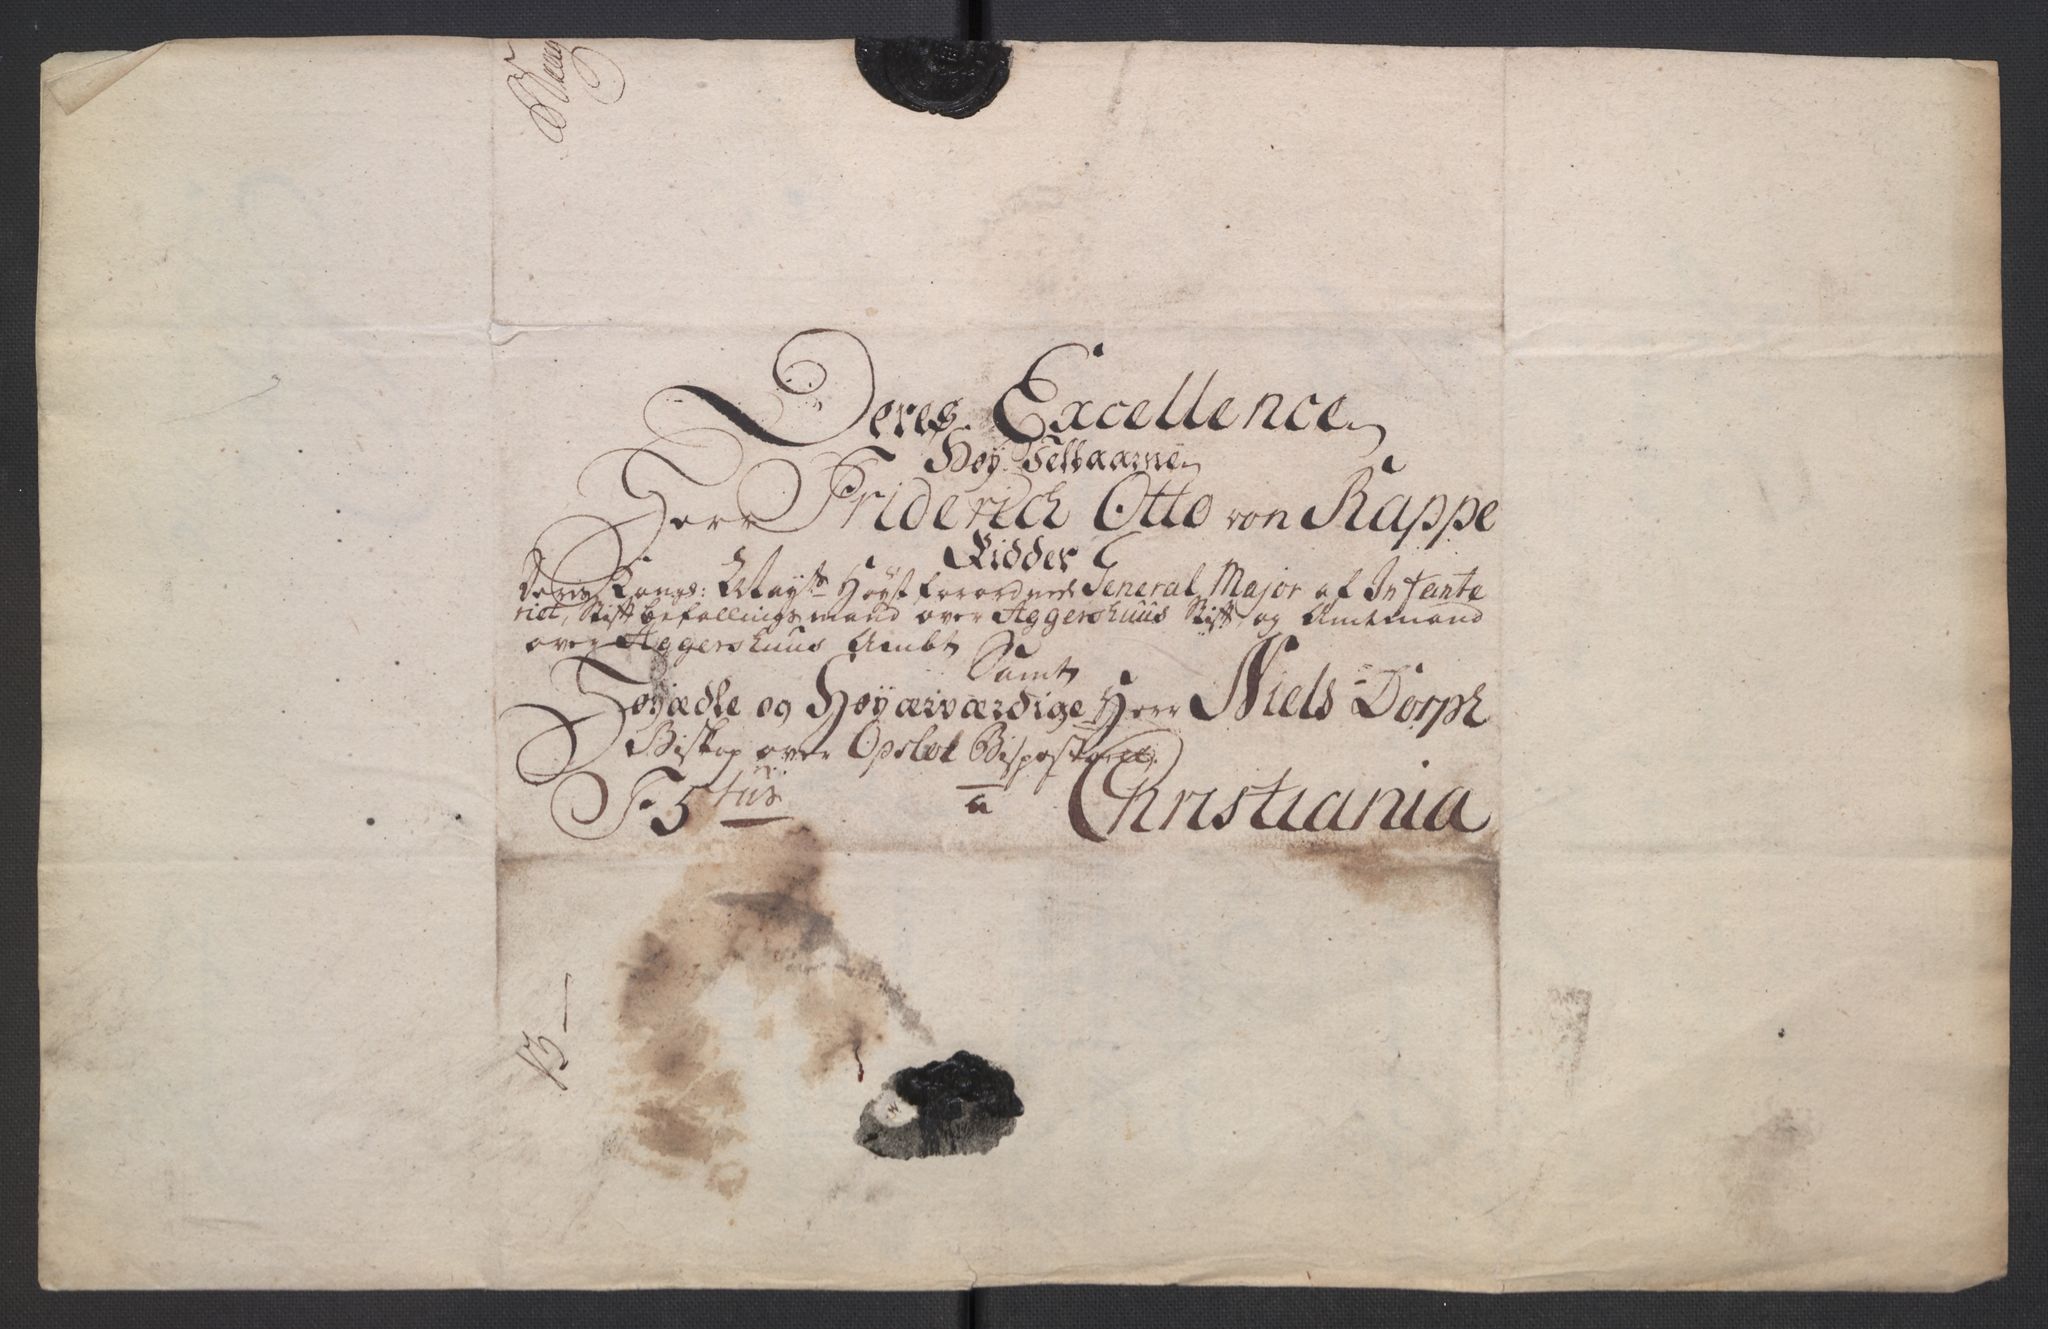 Deres Excellence
Høy Velbaarne
Herr Friderich Otto von Rappe
Ridder
Deres Kongs: Mayts Høystforordnede General Major af Infante
riet, Stiftbefallingsmand over Aggershuus Stift og Amtmand
over Aggershuus Ambt
Samt
Høyædle og Høyærværdige Herr Niels Dorph
Biskop over Opsloe Bispestoel
a Christiania
13
W